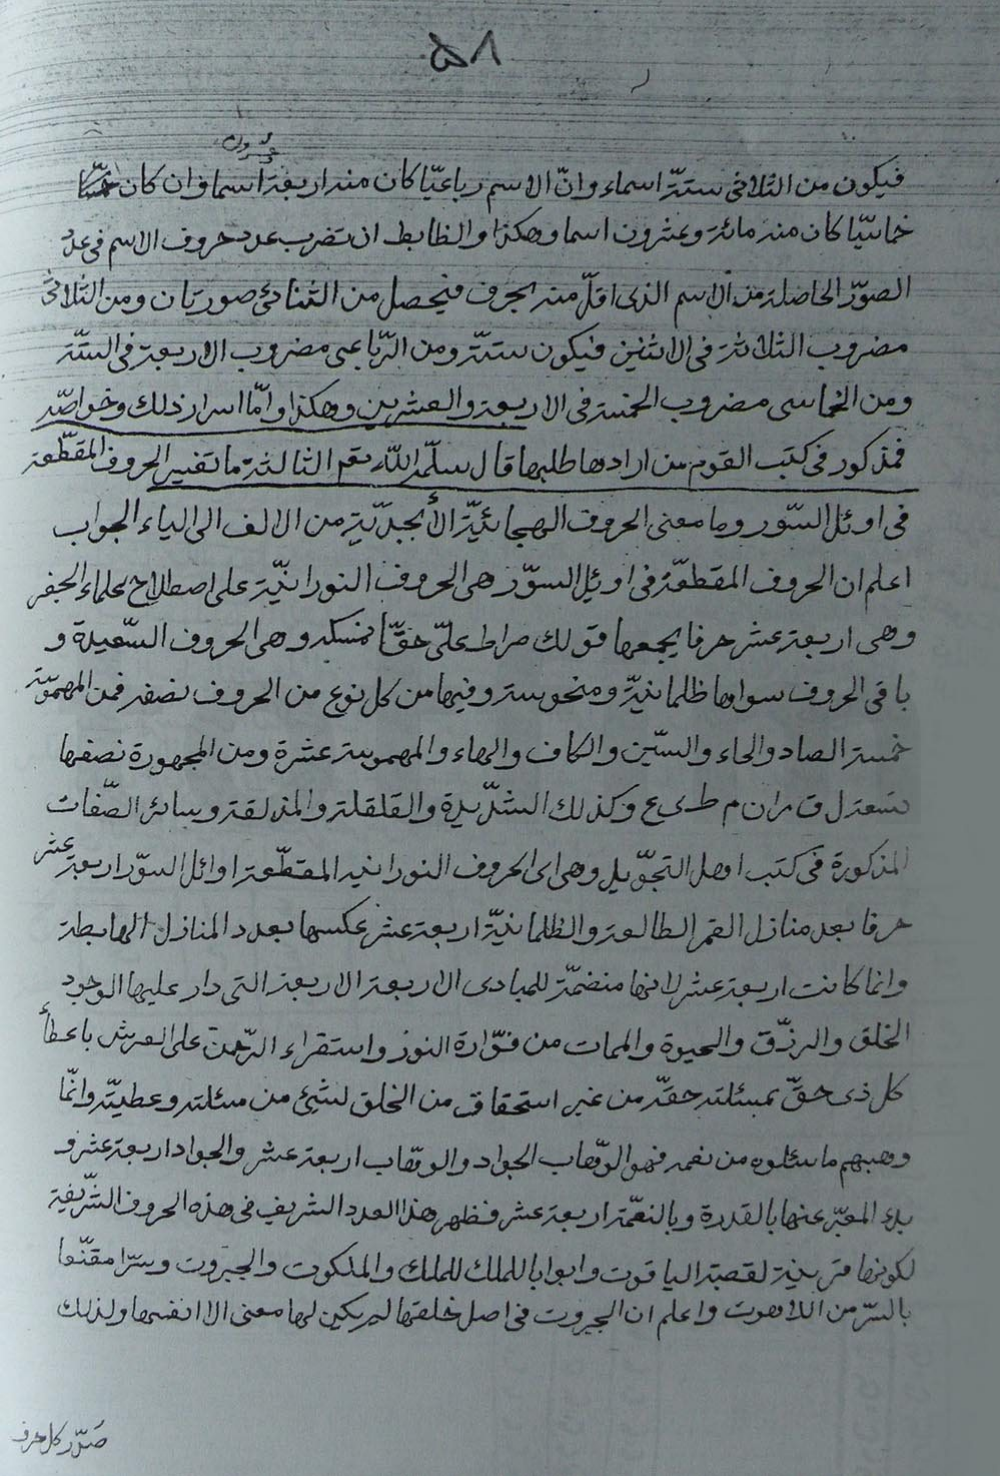 ٥٨
عشرون
فيكون من الثلاثى ستة اسماء وانّ الاسم رباعيّا كان منه اربعة اسما وان كان
خماسيّا كان منه مائة وعشرون اسما وهكذا والظابط ان تضرب عدد حروف الاسم فى عدد
الصوّر الحاصلة من الاسم الذى اقلّ منه بحرف فيحصل من الثنائى صورتان ومن الثلاثى
مضروب الثلاثة فى الاثنين فيكون ستّة ومن الرّباعى مضروب الاربعة فى الستّة
ومن الخماسى مضروب الخمسة فى الاربعة والعشرين وهكذا وامّا اسرار ذلك وخواصّه
فمذكور فى كتب القوم من ارادها طلبها قال سلّمه اللّه تعم الثالثة ما تفسير الحروف المقطّعة
فى اوئل السّور وما معنى الحروف الهجائيّة الأبجدّية من الالف الى الياء الجواب
اعلم ان الحروف المقطعّة فى اوئل السوّر هى الحروف النورانيّة على اصطلاح علماء الجفر
وهى اربعة عشر حرفا يجمعها قولك صراط علىّ حقّا نمسكه وهى الحروف السّعيدة و
باقى الحروف سواها ظلمانيّة ومنحوسة وفيها من كل نوع من الحروف نصفه فمن المهموسة
خمسة الصاد والحاء والسّين والكاف والهاء والمهموسة عشرة ومن المجهورة نصفها
تسعة ل ق ر ا ن م ط ى ع وكذلك الشدّيدة والقلقلة والمذلقة وسائر الصّفات
المذكورة فى كتب اهل التجوّيد وهى اى الحروف النورانيه المقطّعة اوائل السوّر اربعة عشر
حرفا بعدد منازل القمر الطالعة والظلمانيّة اربعة عشر عكسها بعدد المنازل الهابطة
وانما كانت اربعة عشر لانها منضمّة للمبادى الاربعة الاربعة التى دار عليها الوجود
الخلق والرزّق والحيوة والممات من فوّارة النور واستقراء الرّحمن على العرش باعطاء
كل ذى حقّ بمسئلته حقّه من غير استحقاق من الخلق لشئ من مسئلته وعطيّته وانّما
وهبهم ما سئلوه من نعمه فهو الوّهاب الجواد والوهّاب اربعة عشر والجواد اربعة عشر و
يده المعبّر عنها بالقدرة وبالنعّمة اربعة عشر فظهر هذا العدد الشريف فى هذه الحروف الشّريفة
لكونها لقصبة الياقوت وابوابا للملك للملك والملكوت والجبروت وسرّا مقنّعا
بالسّر من اللاهوت واعلم ان الجبروت فى اصل خلقها لم يكن لها معنى الا انفسها ولذلك
صَوّر كل حرف